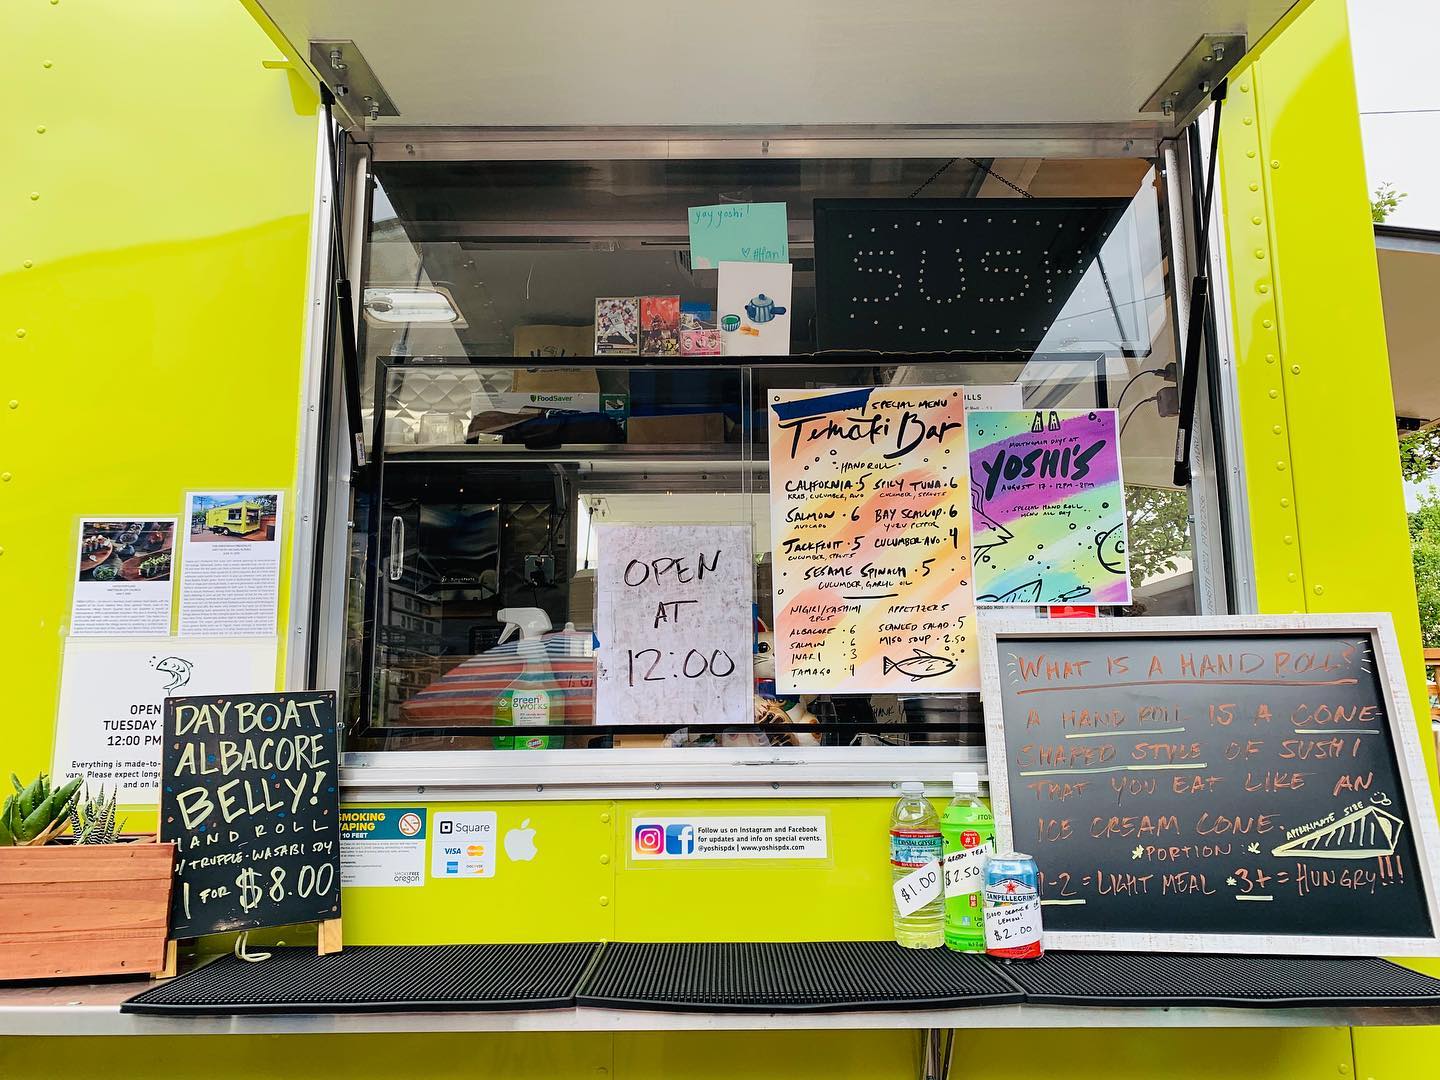 yay yoshi!
♡ Han!
SUSH
FoodSaver
SPECIAL MENU
Temaki Bar
HAND ROLL
CALIFORNIA · 5
KRAB, CUCUMBER, AVO
SPICY TUNA · 6
CUCUMBER, SPROUTS
SALMON · 6
AVOCADO
BAY SCALLOP · 6
YUZU PEPPER
JACKFRUIT · 5
CUCUMBER, SPROUTS
CUCUMBER AVO · 4
SESAME SPINACH · 5
CUCUMBER, GARLIC OIL
NIGIRI/SASHIMI
2PCS
ALBACORE · 6
SALMON · 6
INARI · 3
TAMAGO · 4
APPETIZERS
SEAWEED SALAD · 5
MISO SOUP · 2.50
ILLS
MULTNOMAH DAYS AT
YOSHI'S
AUGUST 17 · 12PM-8PM
SPECIAL HAND ROLL
MENU ALL DAY
OPEN
AT
12:00
green works
OPEN
TUESDAY -
12:00 PM
Everything is made-to-
vary. Please expect longe
and on la
DAY BOAT
ALBACORE
BELLY!
HAND ROLL
W/ TRUFFLE-WASABI SOY
1 FOR $8.00
SMOKING
VAPING
10 FEET
SMOKEFREE
oregon
Square
VISA
DISCOVER
Follow us on Instagram and Facebook
for updates and info on special events.
@yoshispdx | www.yoshispdx.com
CRYSTAL GEYSER
$1.00
GREEN TEA
$2.50
SANPELLEGRINO
BLOOD ORANGE OR
LEMON!
$2.00
WHAT IS A HAND ROLL?
A HAND ROLL IS A CONE-
SHAPED STYLE OF SUSHI
THAT YOU EAT LIKE AN
ICE CREAM CONE.
APPROXIMATE SIZE
*PORTION:*
1-2 = LIGHT MEAL *3+ = HUNGRY!!!